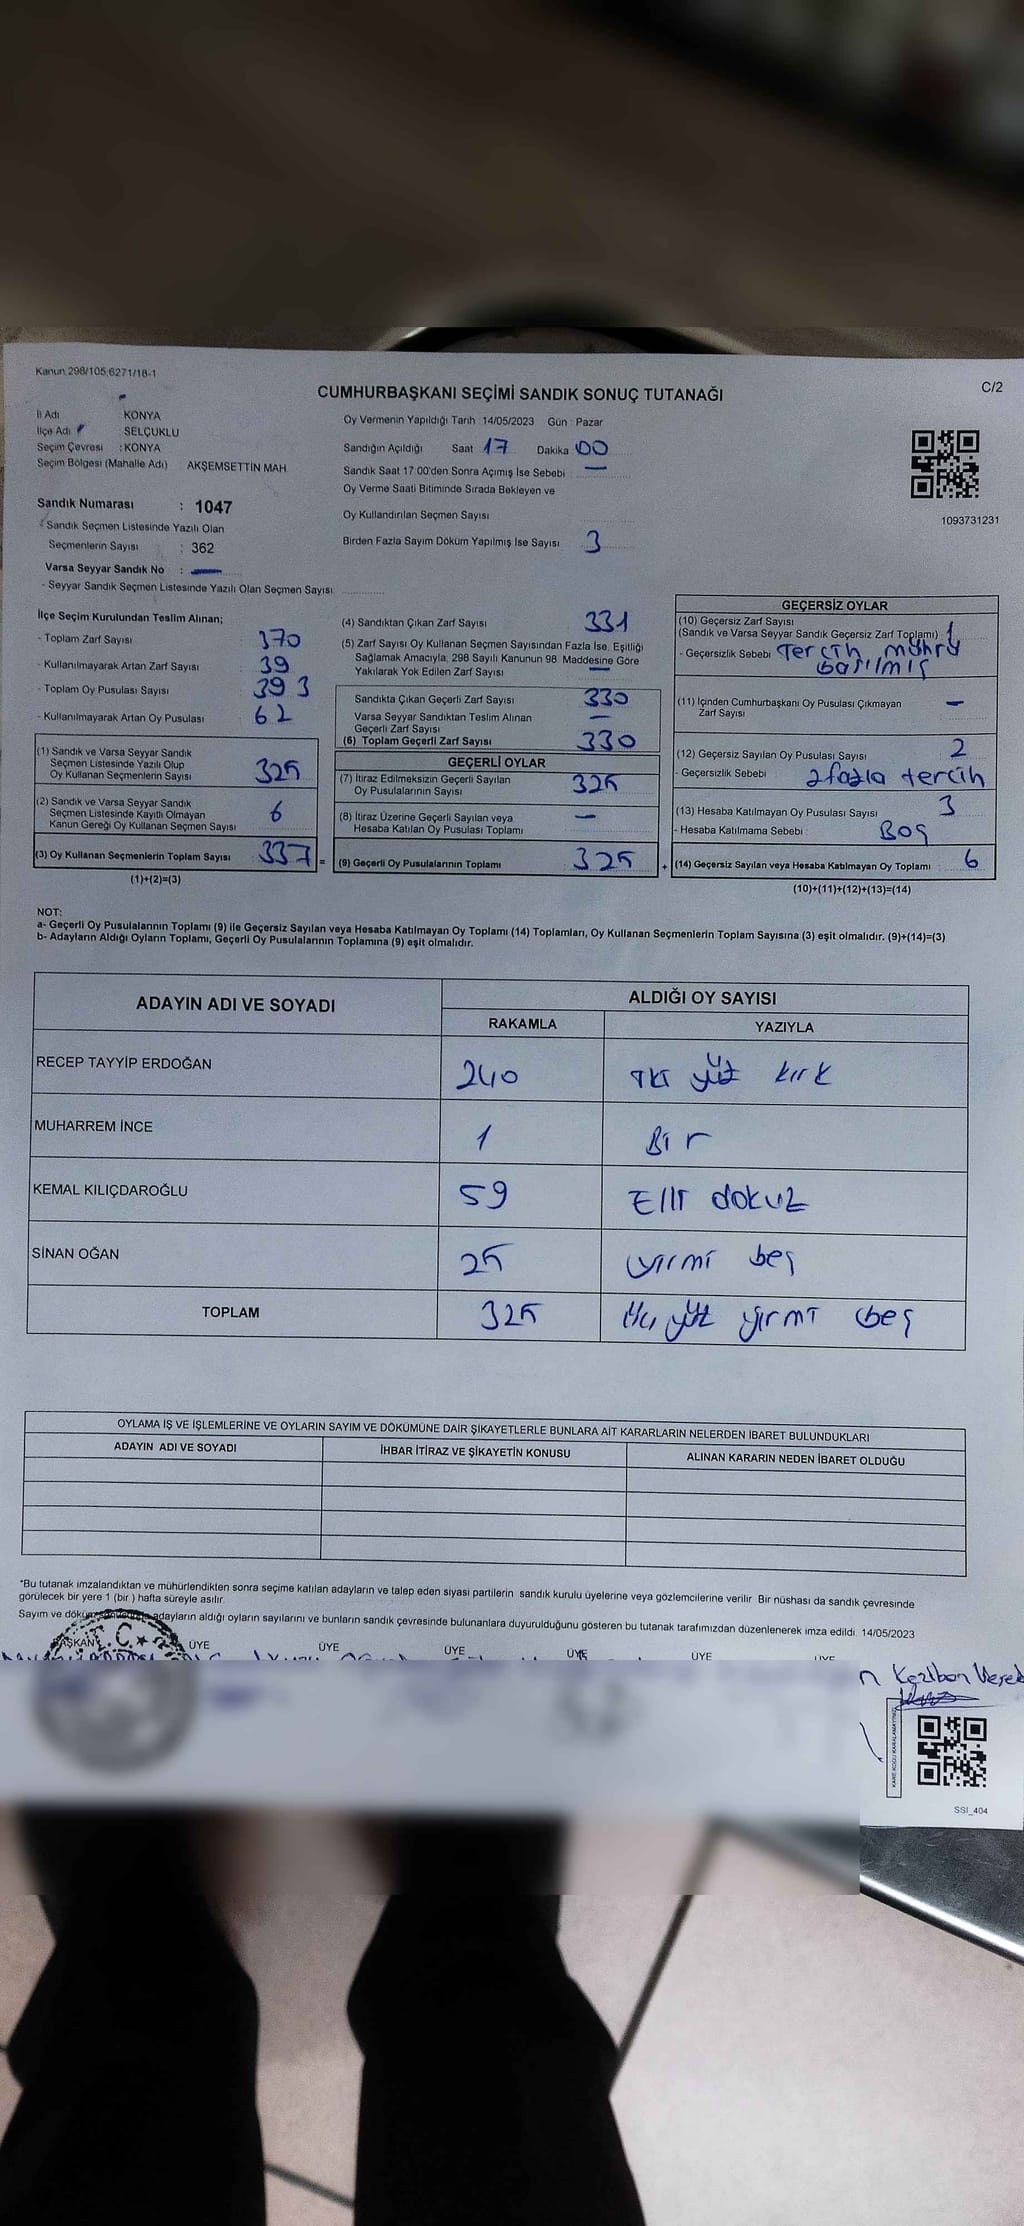 Kanun 298/105,6271/18-1
C/2
CUMHURBAŞKANI SEÇİMİ SANDIK SONUÇ TUTANAĞI
İl Adı KONYA
İlçe Adı SELÇUKLU
Seçim Çevresi : KONYA
Seçim Bölgesi (Mahalle Adı) AKŞEMSETTİN MAH
Sandık Numarası : 1047
- Sandık Seçmen Listesinde Yazılı Olan
Seçmenlerin Sayısı : 362
Varsa Seyyar Sandık No : —
- Seyyar Sandık Seçmen Listesinde Yazılı Olan Seçmen Sayısı
Oy Vermenin Yapıldığı Tarih 14/05/2023 Gün : Pazar
Sandığın Açıldığı Saat 17 Dakika 00
Sandık Saat 17:00'den Sonra Açımış İse Sebebi —
Oy Verme Saati Bitiminde Sırada Bekleyen ve
Oy Kullandırılan Seçmen Sayısı
Birden Fazla Sayım Döküm Yapılmış İse Sayısı 3
1093731231
İlçe Seçim Kurulundan Teslim Alınan;
- Toplam Zarf Sayısı 370
- Kullanılmayarak Artan Zarf Sayısı 39
- Toplam Oy Pusulası Sayısı 393
- Kullanılmayarak Artan Oy Pusulası 62
(1) Sandık ve Varsa Seyyar Sandık
Seçmen Listesinde Yazılı Olup
Oy Kullanan Seçmenlerin Sayısı 325
(2) Sandık ve Varsa Seyyar Sandık
Seçmen Listesinde Kayıtlı Olmayan
Kanun Gereği Oy Kullanan Seçmen Sayısı 6
(3) Oy Kullanan Seçmenlerin Toplam Sayısı 337 =
(1)+(2)=(3)
(4) Sandıktan Çıkan Zarf Sayısı 331
(5) Zarf Sayısı Oy Kullanan Seçmen Sayısından Fazla İse, Eşitliği
Sağlamak Amacıyla, 298 Sayılı Kanunun 98 Maddesine Göre
Yakılarak Yok Edilen Zarf Sayısı —
Sandıkta Çıkan Geçerli Zarf Sayısı 330
Varsa Seyyar Sandıktan Teslim Alınan
Geçerli Zarf Sayısı —
(6) Toplam Geçerli Zarf Sayısı 330
GEÇERLİ OYLAR
(7) İtiraz Edilmeksizin Geçerli Sayılan
Oy Pusulalarının Sayısı 325
(8) İtiraz Üzerine Geçerli Sayılan veya
Hesaba Katılan Oy Pusulası Toplamı —
(9) Geçerli Oy Pusulalarının Toplamı 325 +
GEÇERSİZ OYLAR
(10) Geçersiz Zarf Sayısı
(Sandık ve Varsa Seyyar Sandık Geçersiz Zarf Toplamı) 1
- Geçersizlik Sebebi Tercih mührü
basılmış
(11) İçinden Cumhurbaşkanı Oy Pusulası Çıkmayan
Zarf Sayısı —
(12) Geçersiz Sayılan Oy Pusulası Sayısı 2
- Geçersizlik Sebebi 2 fazla tercih
(13) Hesaba Katılmayan Oy Pusulası Sayısı 3
- Hesaba Katılmama Sebebi Boş
(14) Geçersiz Sayılan veya Hesaba Katılmayan Oy Toplamı 6
(10)+(11)+(12)+(13)=(14)
NOT:
a- Geçerli Oy Pusulalarının Toplamı (9) ile Geçersiz Sayılan veya Hesaba Katılmayan Oy Toplamı (14) Toplamları, Oy Kullanan Seçmenlerin Toplam Sayısına (3) eşit olmalıdır. (9)+(14)=(3)
b- Adayların Aldığı Oyların Toplamı, Geçerli Oy Pusulalarının Toplamına (9) eşit olmalıdır.
ADAYIN ADI VE SOYADI
ALDIĞI OY SAYISI
RAKAMLA YAZIYLA
RECEP TAYYİP ERDOĞAN 240 İki yüz kırk
MUHARREM İNCE 1 Bir
KEMAL KILIÇDAROĞLU 59 Elli dokuz
SİNAN OĞAN 25 yirmi beş
TOPLAM 325 üç yüz yirmi beş
OYLAMA İŞ VE İŞLEMLERİNE VE OYLARIN SAYIM VE DÖKÜMÜNE DAİR ŞİKAYETLERLE BUNLARA AİT KARARLARIN NELERDEN İBARET BULUNDUKLARI
ADAYIN ADI VE SOYADI İHBAR İTİRAZ VE ŞİKAYETİN KONUSU ALINAN KARARIN NEDEN İBARET OLDUĞU
*Bu tutanak imzalandıktan ve mühürlendikten sonra seçime katılan adayların ve talep eden siyasi partilerin sandık kurulu üyelerine veya gözlemcilerine verilir Bir nüshası da sandık çevresinde
görülecek bir yere 1 (bir ) hafta süreyle asılır.
Sayım ve döküm adayların aldığı oyların sayılarını ve bunların sandık çevresinde bulunanlara duyurulduğunu gösteren bu tutanak tarafımızdan düzenlenerek imza edildi. 14/05/2023
BAŞKAN T.C. ÜYE ÜYE ÜYE ÜYE ÜYE ÜYE
SSI_404